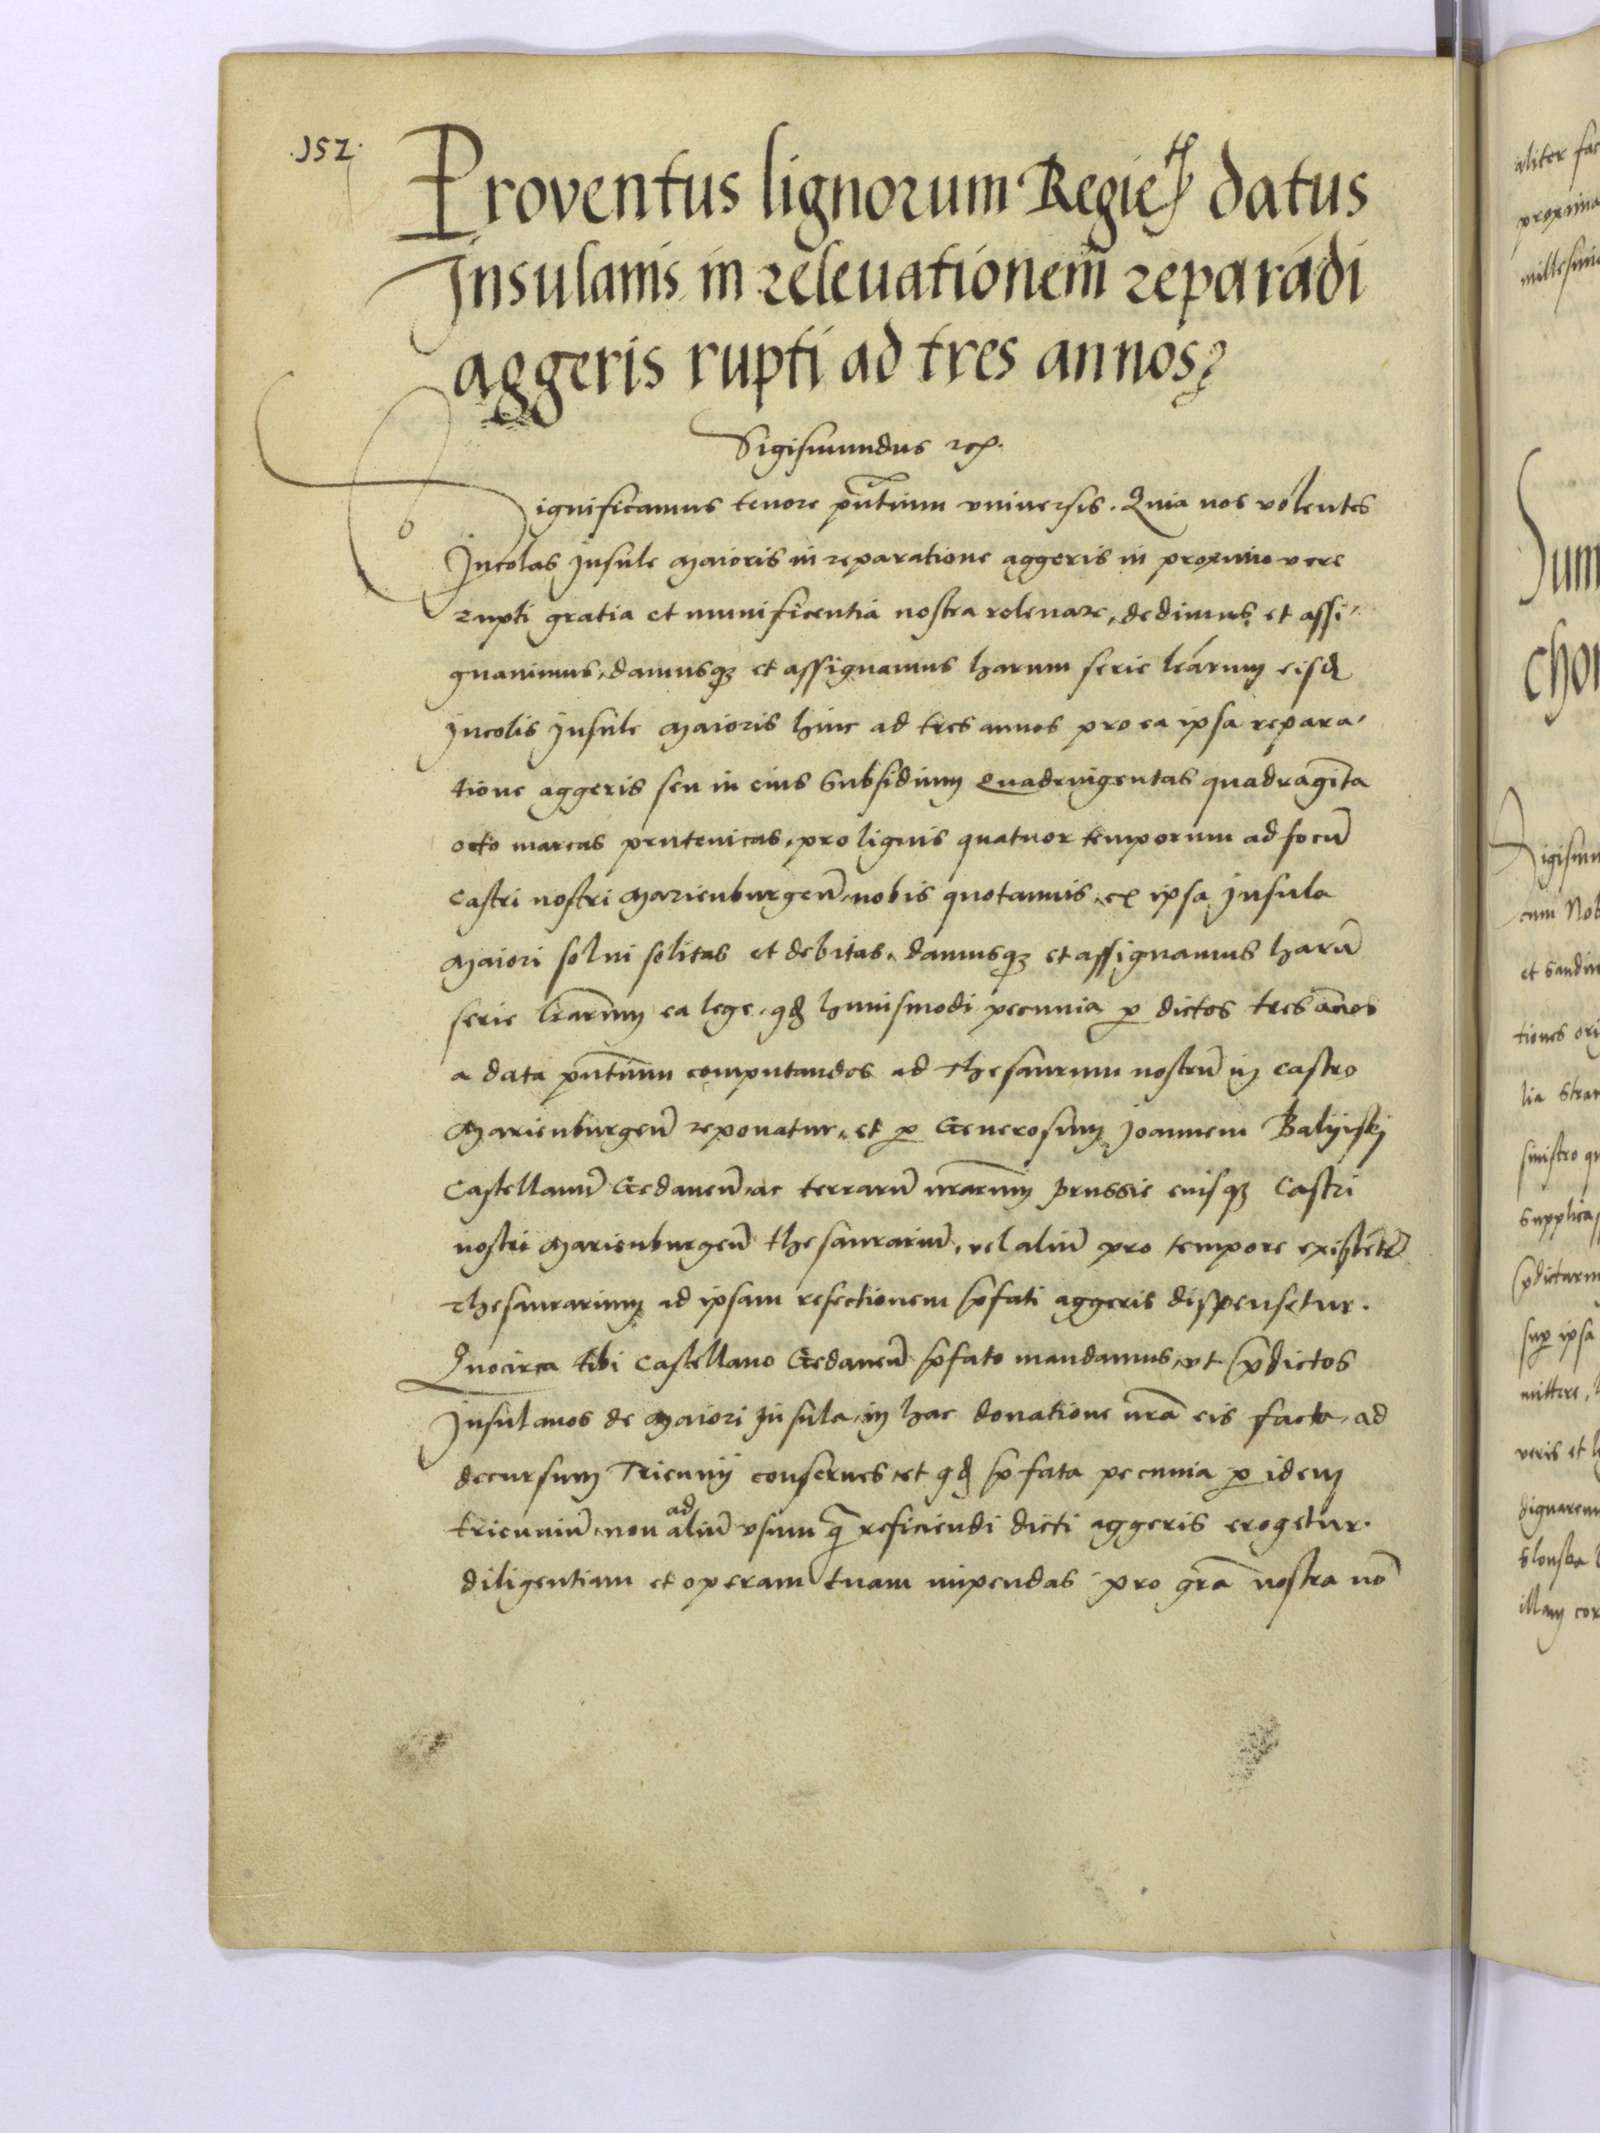 .152.
Proventus lignorum Regie datus
Insulanis in releuationem reparādi
aggeris rupti ad tres annos
Sigismundus rex.
Significamus tenore pñtium vniuersis. Quia nos volentes
Incolas Insule Maioris in reparatione aggeris in proximo vere
rupti gratia et munificentia nostra releuare, dedimus et assi-
gnauimus, damusqȝ et assignamus harum serie lr̃arum eisd
Incolis Insule Maioris hinc ad tres annos pro ea ipsa repara-
tione aggeris seu in eius subsidium Quadringentas quadragīta
octo marcas prutenicas, pro lignis quatuor temporum ad focū
castri nostri Marienburgeñ, nobis quotannis, ex ipsa Insula
Maiori solui solitas et debitas, damusqȝ et assignamus harū
serie lr̃arum ea lege, qđ huiusmodi pecunia p dictos tres ãnos
a data pñtium computandos ad Thesaurum nostrū in castro
Marienburgeñ reponatur, et p Generosum Joannem Balijnskj
Castellanū Gedaneñ, ac terrarū nr̃arum prussie eiusqȝ Castri
nostri Marienburgeñ thesaurariū, vel aliū pro tempore existētē
Thesaurarium ad ipsam refectionem p̃fati aggeris dispensetur.
Quocirca tibi Castellano Gedaneñ p̃fato mandamus, vt p̃dictos
Insulanos de Maiori Insula, in hac donatione nr̃a eis facta, ad
decursum Triennij conserues, et qđ p̃fata pecunia p idem
trienniū, non ad aliū vsum q̃ reficiendi dicti aggeris erogetur.
diligentiam et operam tuam impendas pro gr̃a nostra nō
aliter fac
proxima
millesimo
Sum
chor
Sigismu
cum Nob
et Sandim
tiones ori
lia Stran
sinistro qu
supplica
p̃dictarum
sup ipsa
mittere,
veris et l
dignarem
illam cor